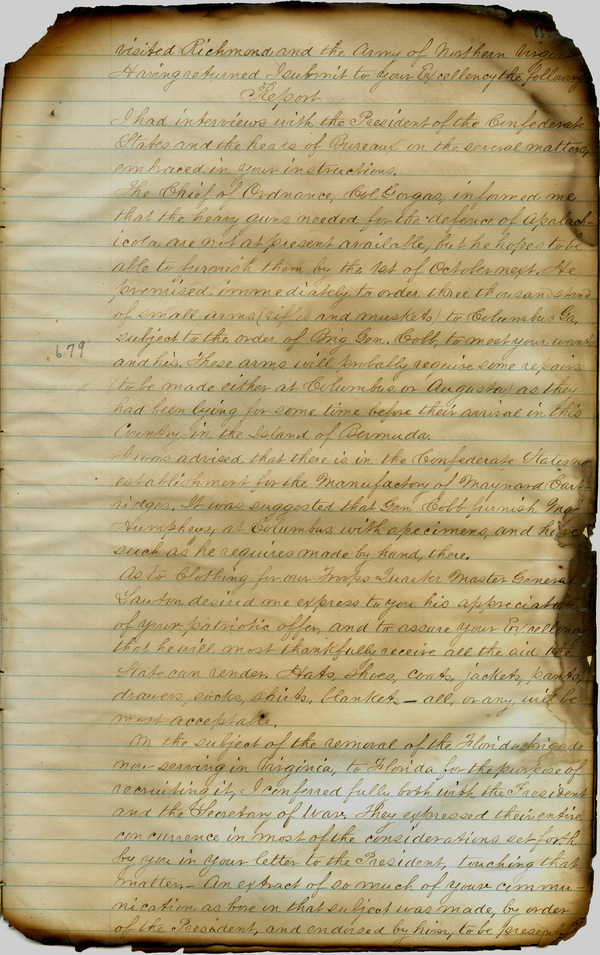 visited Richmond and the Army of Northern Virginia
Having returned I submit to your Excellency the following
Report
I had interviews with the President of the Confederate
States and the heads of Bureaux on the several matters,
embraced in your instructions.
The Chief of Ordnance, Col. Gorgas, informed me
that the heavy guns needed for the defence of Apalach-
icola are not at present available, but he hopes to be
able to furnish them by the 1st of October next. He
promised immediately to order three thousand stand
of small arms (rifles and muskets) to Columbus Ga.
subject to the order of Brig. Gen. Cobb, to meet your wants
679
and his. These arms will probably require some repairs
(to be made either at Columbus or Augusta) as they
had been lying for some time before their arrival in this
Country, in the Island of Bermuda.
I was advised that there is in the Confederate States no
establishment for the Manufactory of Maynard Cart-
ridges. It was suggested that Gen. Cobb furnish Maj
Humpheys, at Columbus, with specimens, and have
such as he requires made by hand, there.
As to Clothing for our Troops Quarter Master General
Lawton desired me express to you his appreciation
of your patriotic offer, and to assure your Excellency
that he will most thankfully receive all the aid the
State can render. Hats, shoes, coats, jackets, pants,
drawers, socks, shirts, blankets — all, or any, will be
most acceptable.
On the subject of the removal of the Florida brigade
now serving in Virginia, to Florida for the purpose of
recruiting it, I conferred fully both with the President
and the Secretary of War. They expressed their entire
concurrence in most of the considerations set forth
by you in your letter to the President, touching that
matter. — An extract of so much of your commu-
nication as bore on that subject was made, by order
of the President, and endorsed by him, to be present